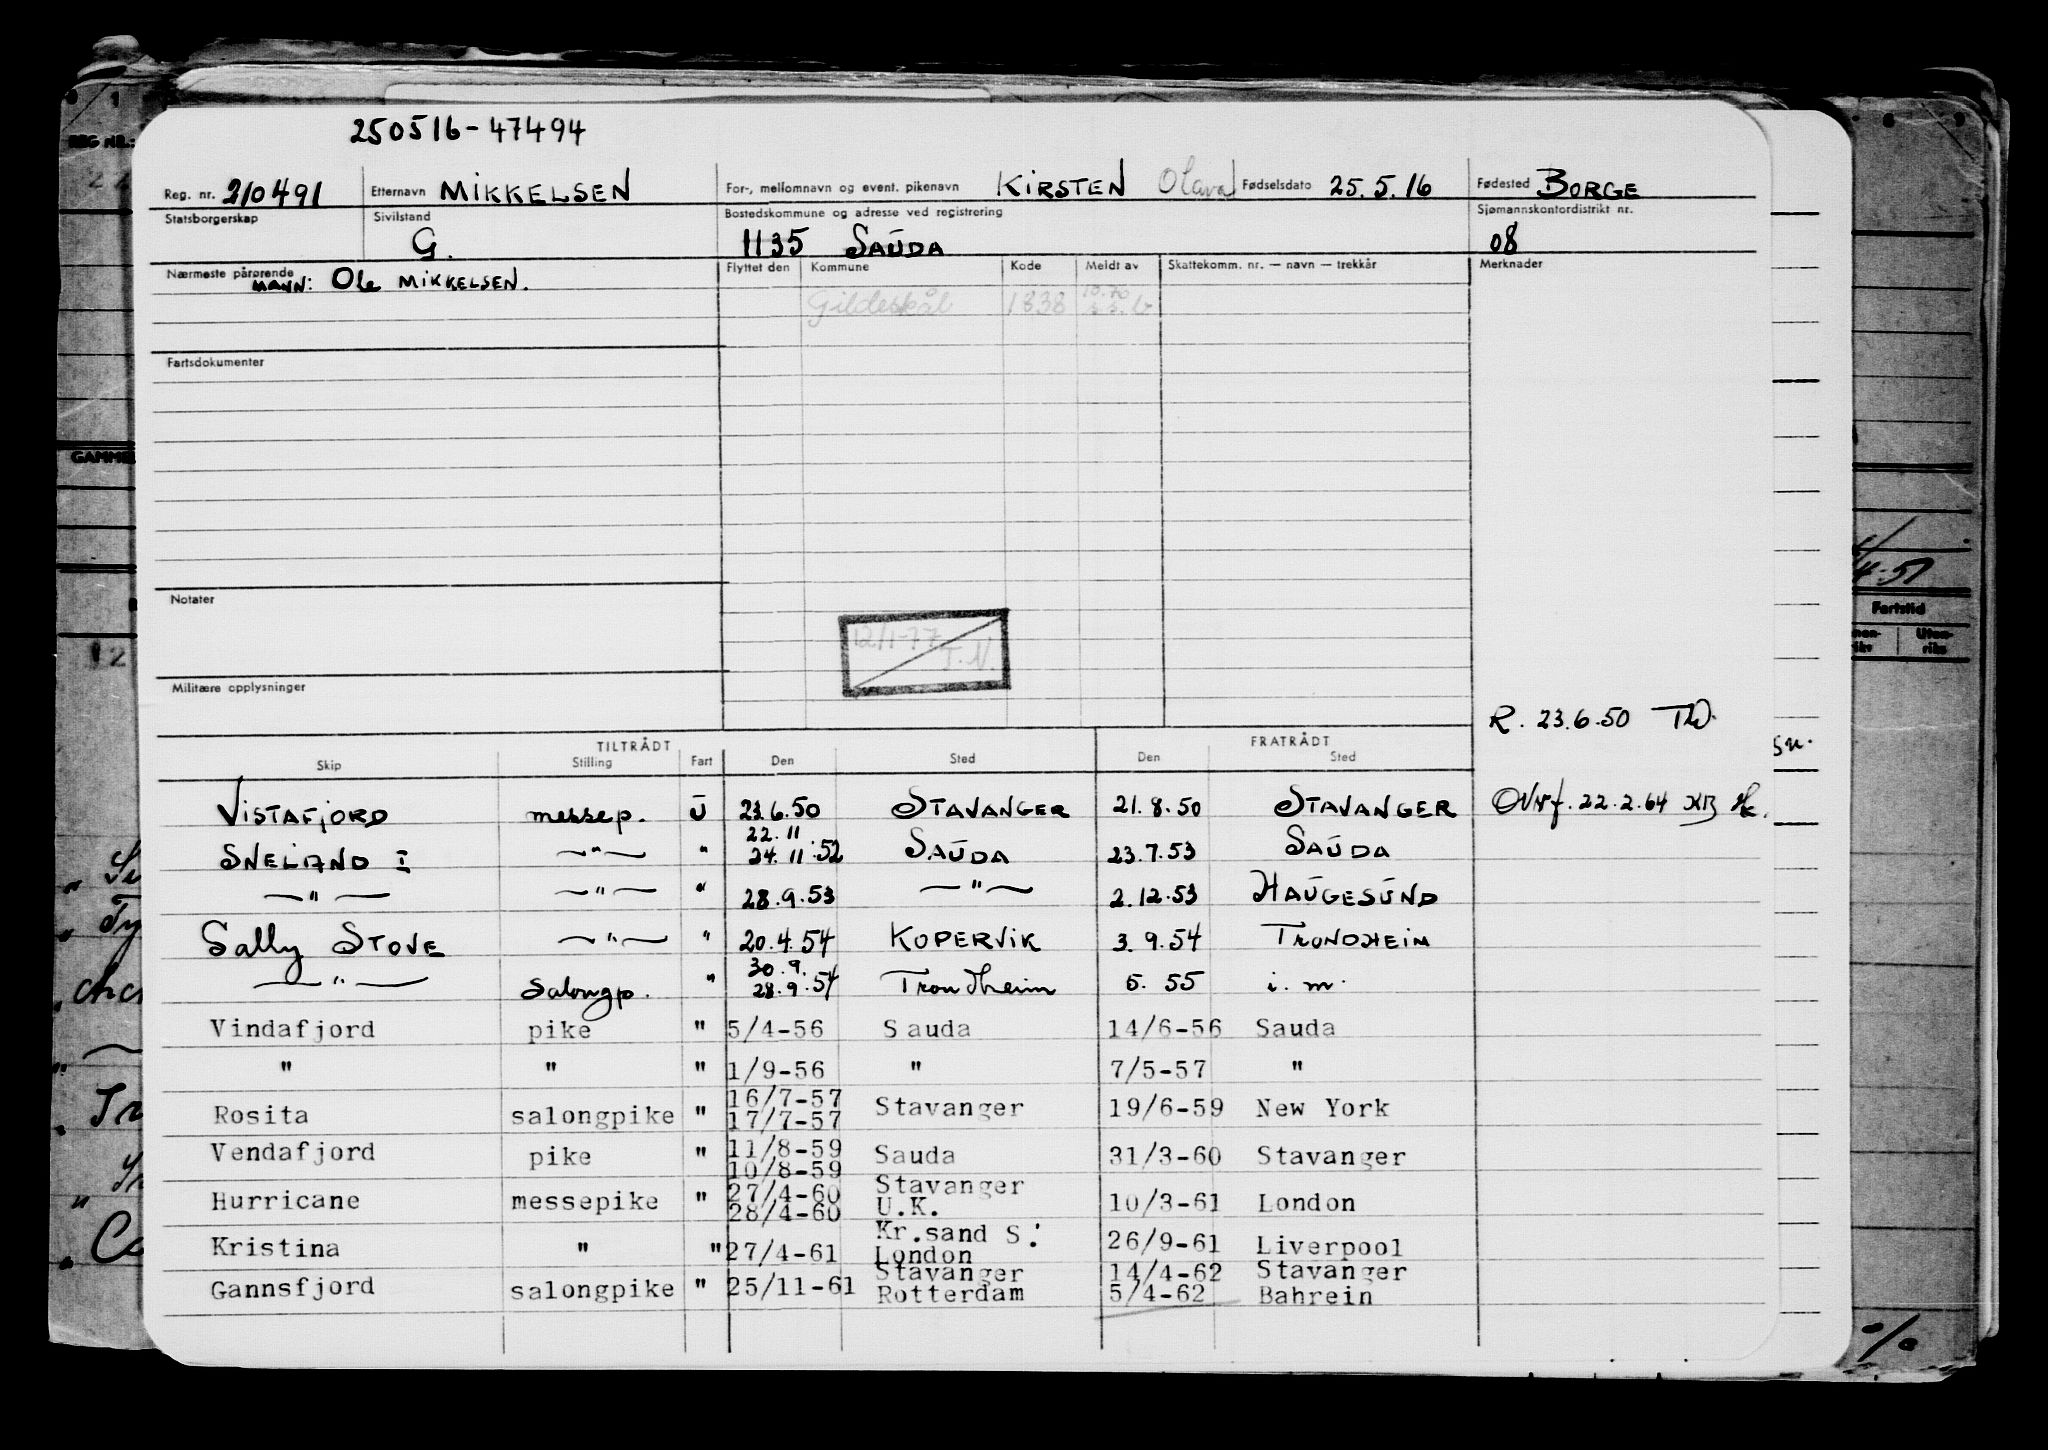 250516-47494
Reg. nr. 210491 Etternavn MIKKELSEN For-, mellomnavn og event. pikenavn KIRSTEN Olava Fødselsdato 25.5.16 Fødested BORGE
Statsborgerskap Sivilstand Bostedskommune og adresse ved registrering Sjømannskontordistrikt nr.
G. 1135 SAUDA 08
Nærmeste pårørende Flyttet den Kommune Kode Meldt av Skattekomm. nr. — navn — trekkår Merknader
MANN: Ole MIKKELSEN.
Gildeskål 1838
Fartsdokumenter
Notater
12/1-77 T.N.
Militære opplysninger
R. 23.6.50
TILTRÅDT FRATRÅDT
Skip Stilling Fart Den Sted Den Sted
VISTAFJORD messep. U 23.6.50 STAVANGER 21.8.50 STAVANGER 22.2.64
22.11
SNELAND I —"— " 24.11.52 SAUDA 23.7.53 SAUDA
—"— —"— " 28.9.53 —"— 2.12.53 HAUGESUND
Sally STOVE —"— " 20.4.54 KOPERVIK 3.9.54 TRONDHEIM
30.9.
—"— Salongp. " 28.9.54 Trondheim 6.55 i. m.
Vindafjord pike " 5/4-56 Sauda 14/6-56 Sauda
" " " 1/9-56 " 7/5-57 "
16/7-57
Rosita salongpike " 17/7-57 Stavanger 19/6-59 New York
11/8-59
Vendafjord pike " 10/8-59 Sauda 31/3-60 Stavanger
27/4-60 Stavanger
Hurricane messepike " 28/4-60 U.K. 10/3-61 London
Kr.sand S.
Kristina " " 27/4-61 London 26/9-61 Liverpool
Stavanger 14/4-62 Stavanger
Gannsfjord salongpike " 25/11-61 Rotterdam 5/4-62 Bahrein
REG NR.:
Fartstid